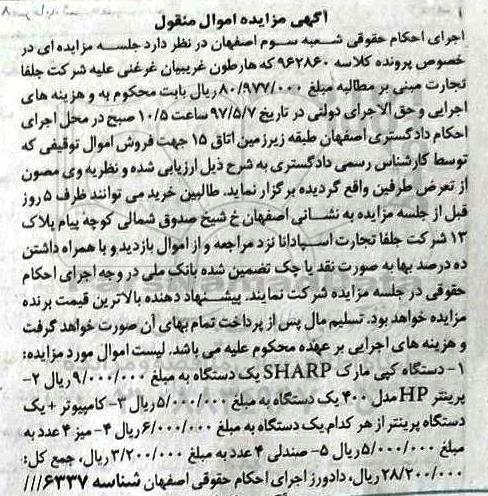 آگهی مزایده اموال منقول
اجرای احکام حقوقی شعبه سوم اصفهان در نظر دارد جلسه مزایده ای در
خصوص پرونده کلاسه ۹۶۲۸۶۰ که هارطون غریبیان غرغنی علیه شرکت جلفا
تجارت مبنی بر مطالبه مبلغ ۸۰/۹۷۷/۰۰۰ریال بابت محکوم به و هزینه های
اجرایی و حق الاجرای دولتی در تاریخ ۹۷/۵/۷ ساعت ۱۰/۵ صبح در محل اجرای
احکام دادگستری اصفهان طبقه زیرزمین اتاق ۱۵ جهت فروش اموال توقیفی که
توسط کارشناس رسمی دادگستری به شرح ذیل ارزیابی شده و نظریه وی مصون
از تعرض طرفین واقع گردیده برگزار نماید. طالبین خرید می توانند ظرف ۵ روز
قبل از جلسه مزایده به نشانی اصفهان خ شیخ صدوق شمالی کوچه پیام پلاک
۱۳ شرکت جلفا تجارت اسپادانا نزد مراجعه و از اموال بازدید و با همراه داشتن
ده درصد بها به صورت نقد یا چک تضمین شده بانک ملی در وجه اجرای احکام
حقوقی در جلسه مزایده شرکت نمایند. پیشنهاد دهنده بالاترین قیمت برنده
مزایده خواهد بود. تسلیم مال پس از پرداخت تمام بهای آن صورت خواهد گرفت
و هزینه های اجرایی بر عهده محکوم علیه می باشد. لیست اموال مورد مزایده:
۱- دستگاه کپی مارک SHARP یک دستگاه به مبلغ ۹/۰۰۰/۰۰۰ ریال ۲-
پرینتر HP مدل ۴۰۰ یک دستگاه به مبلغ ۵/۰۰۰/۰۰۰ریال ۳- کامپیوتر + یک
دستگاه پرینتر از هر کدام یک دستگاه به مبلغ ۶/۰۰۰/۰۰۰ریال ۴- میز ۴ عدد به
مبلغ ۵/۰۰۰/۰۰۰ریال ۵- صندلی ۴ عدد به مبلغ ۳/۲۰۰/۰۰۰ریال، جمع کل:
۲۸/۲۰۰/۰۰۰ریال، دادورز اجرای احکام حقوقی اصفهان شناسه ۶۳۳۷///